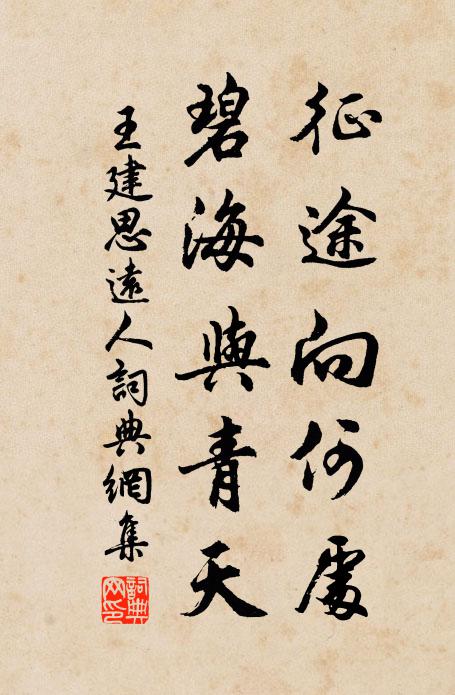 征途向何處
碧海與青天
王建思遠人詞典網集
詞典
网印